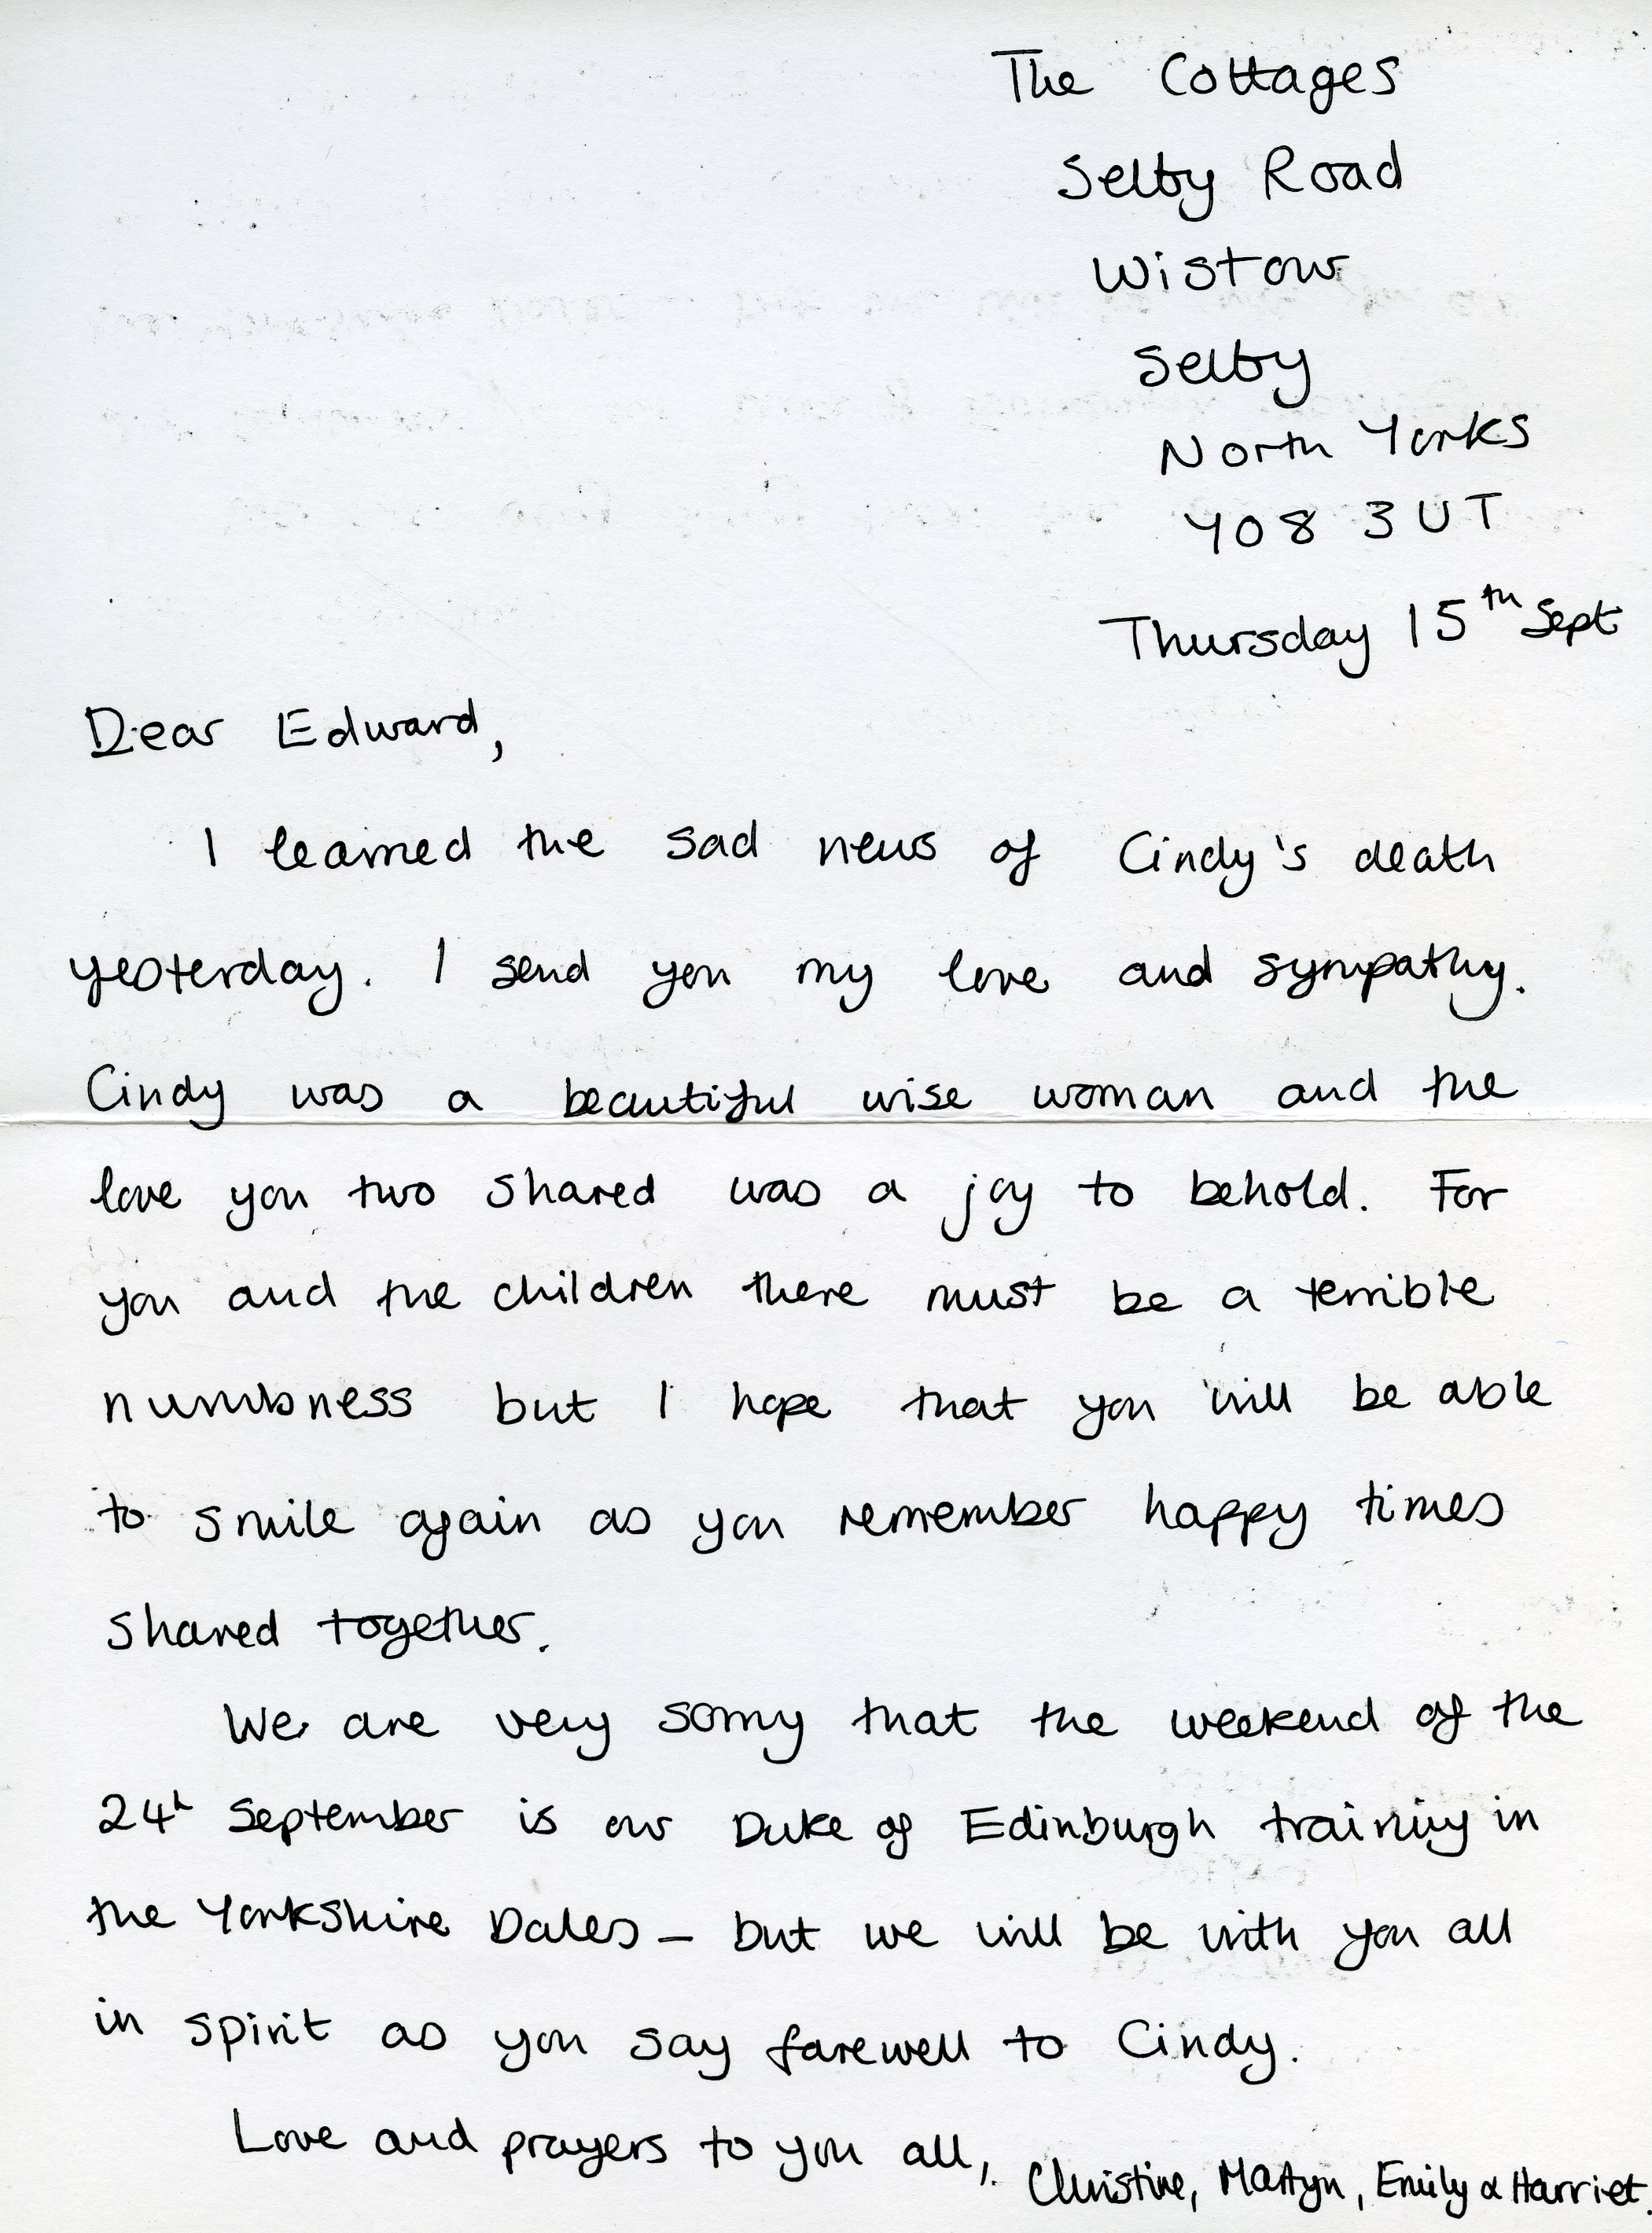 The Cottages
Selby Road
Wistow
Selby
North Yorks
YO8 3UT
Thursday 15th Sept
Dear Edward,
I learned the sad news of Cindy's death
yesterday. I send you my love and sympathy.
Cindy was a beautiful wise woman and the
love you two shared was a joy to behold. For
you and the children there must be a terrible
numbness but I hope that you will be able
to smile again as you remember happy times
shared together.
We are very sorry that the weekend of the
24th September is our Duke of Edinburgh training in
the Yorkshire Dales – but we will be with you all
in spirit as you say farewell to Cindy.
Love and prayers to you all, Christine, Martyn, Emily & Harriet.